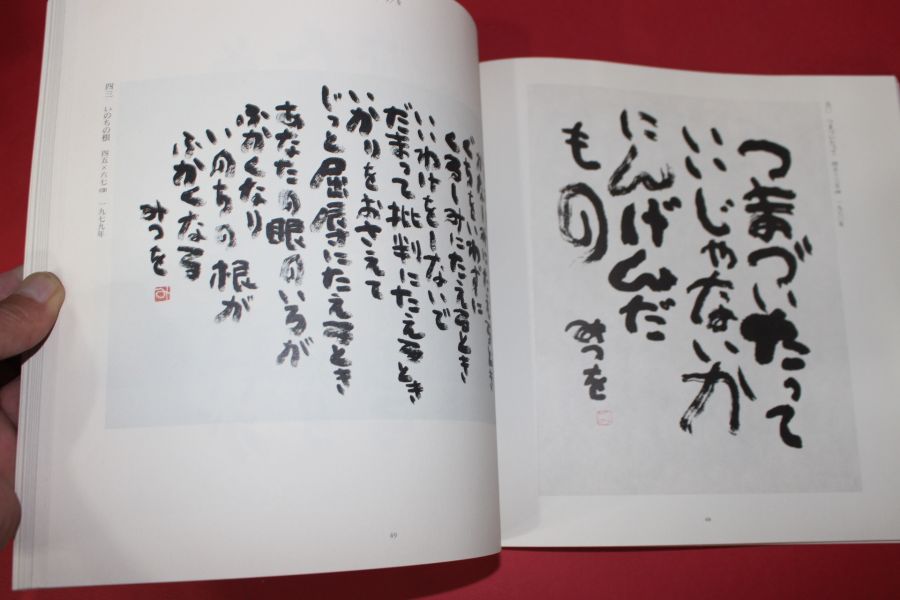 つまづいたって
いいじゃないか
にんげんだ
もの
みつを
48
ぐちをいわずに
くるしみにたえるとき
いいわけをしないで
だまって批判にたえるとき
いかりをおさえて
じっと屈辱にたえるとき
あなたの眼のいろが
ふかくなり
いのちの根が
ふかくなる
みつを
四三 いのちの根 四五×六七㎝ 一九七九年
49